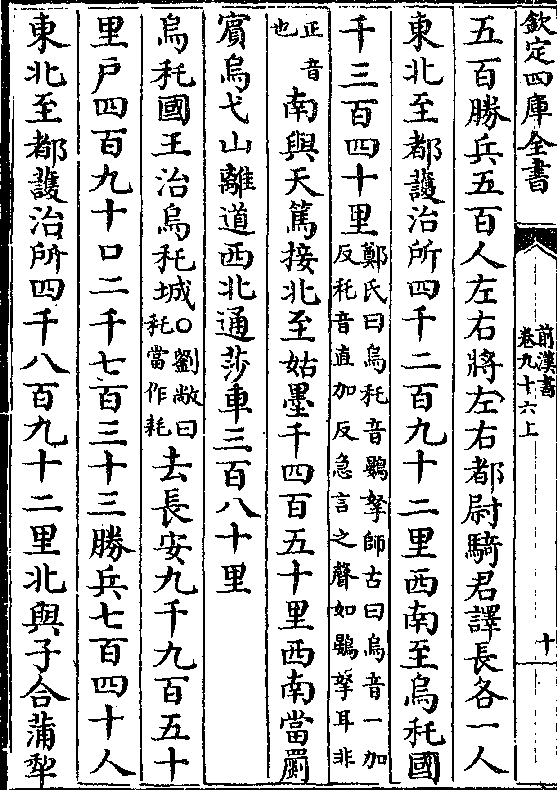 欽定四庫全書
前漢書
卷九十六上
十
五百勝兵五百人左右將左右都尉騎君譯長各一人
東北至都護治所四千二百九十二里西南至烏秅國
千三百四十里鄭氏曰烏秅音鷃拏師古曰烏音一加反秅音直加反急言之聲如鷃拏耳非
正音也南與天篤接北至姑墨千四百五十里西南當罽
賓烏弋山離道西北通莎車三百八十里
烏秅國王治烏秅城〇劉敞曰秅當作耗去長安九千九百五十
里戶四百九十口二千七百三十三勝兵七百四十人
東北至都護治所四千八百九十二里北與子合蒲犂